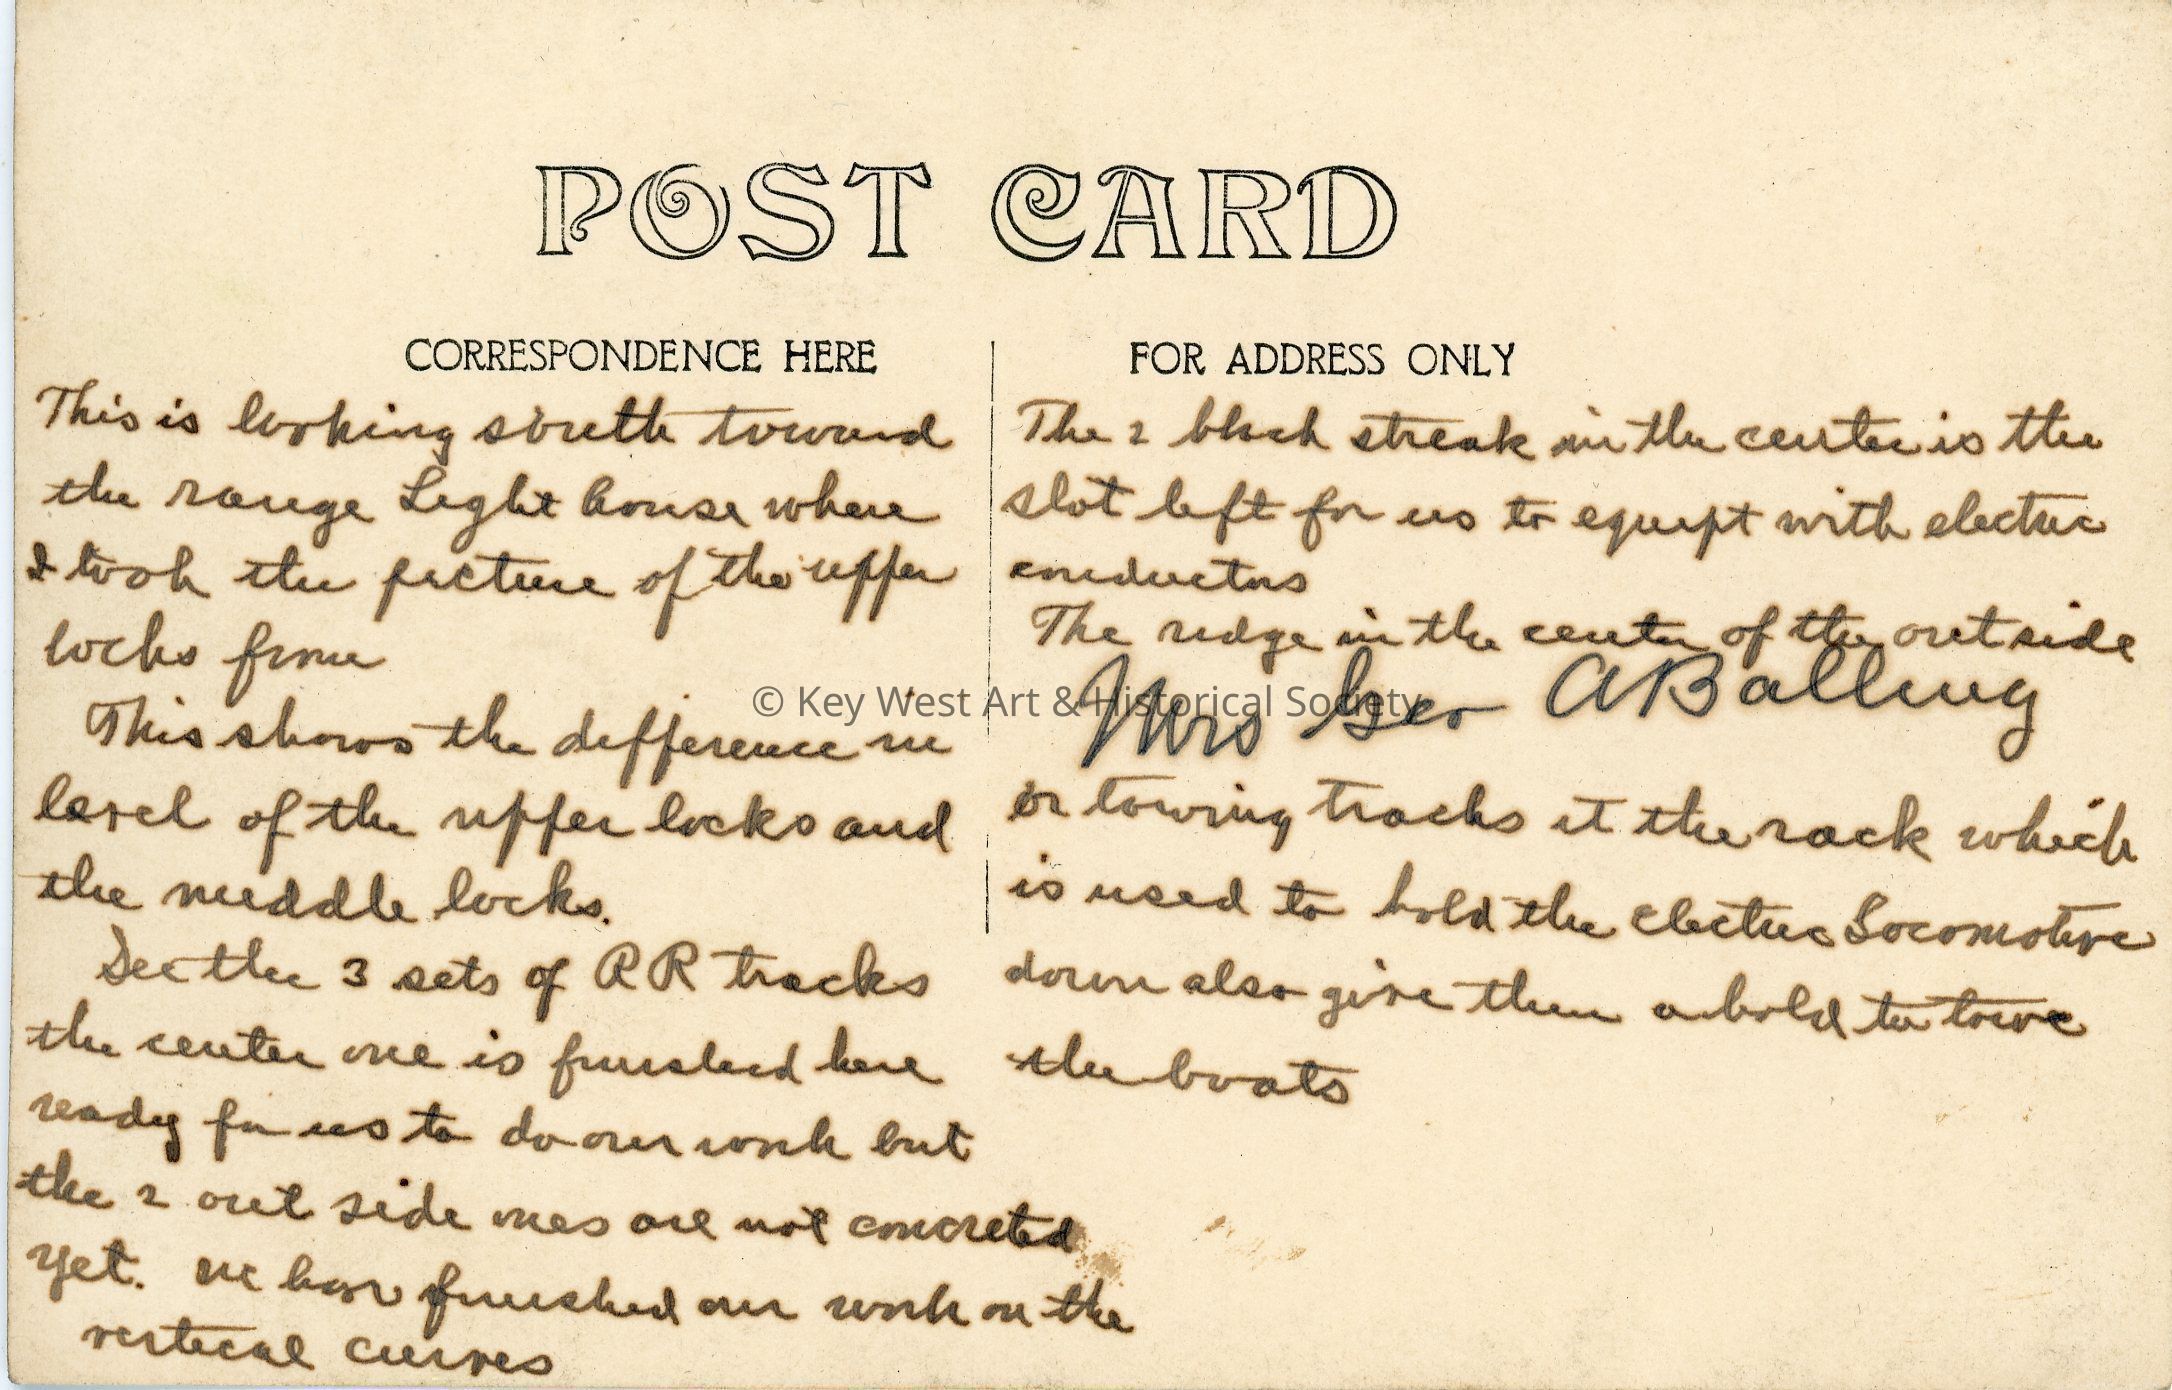 POST CARD
CORRESPONDENCE HERE
This is looking south toward
the range Light house where
I took the picture of the upper
locks from
This shows the difference in
level of the upper locks and
the middle locks.
See the 3 sets of RR tracks
the center one is finished here
ready for us to do our work but
the 2 out side ones are not concreted
yet. We have finished our work on the
vertical curves
FOR ADDRESS ONLY
The 2 black streak in the center is the
slot left for us to equipt with electric
conductors
The ridge in the center of the outside
Mrs Geo A Balling
or towing tracks it the rack which
is used to hold the electric Locomotive
down also give them a hold to towe
the boats
© Key West Art & Historical Society